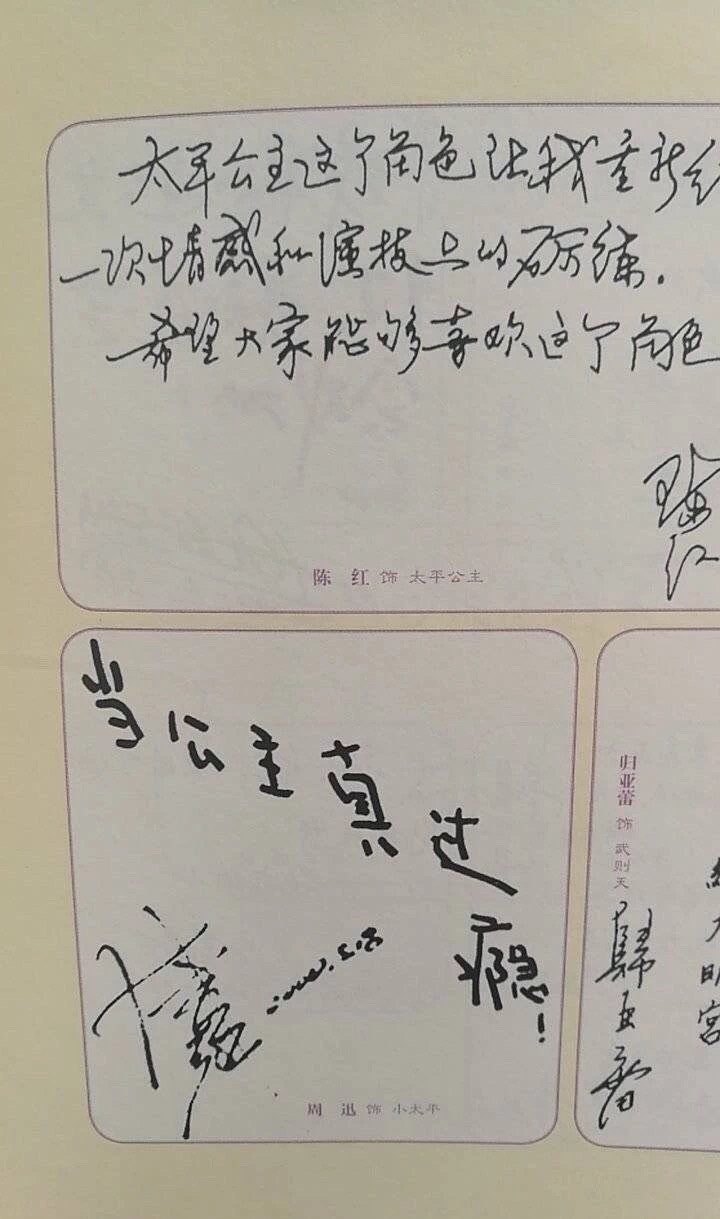 太平公主这个角色让我重新经
一次情感和演技上的磨练.
希望大家能够喜欢这个角色
陈红
陈 红 饰 太平公主
当公主真过瘾!
周迅 2000.5.18
周 迅 饰 小太平
归亚蕾 饰 武则天
大明宫
歸亞蕾